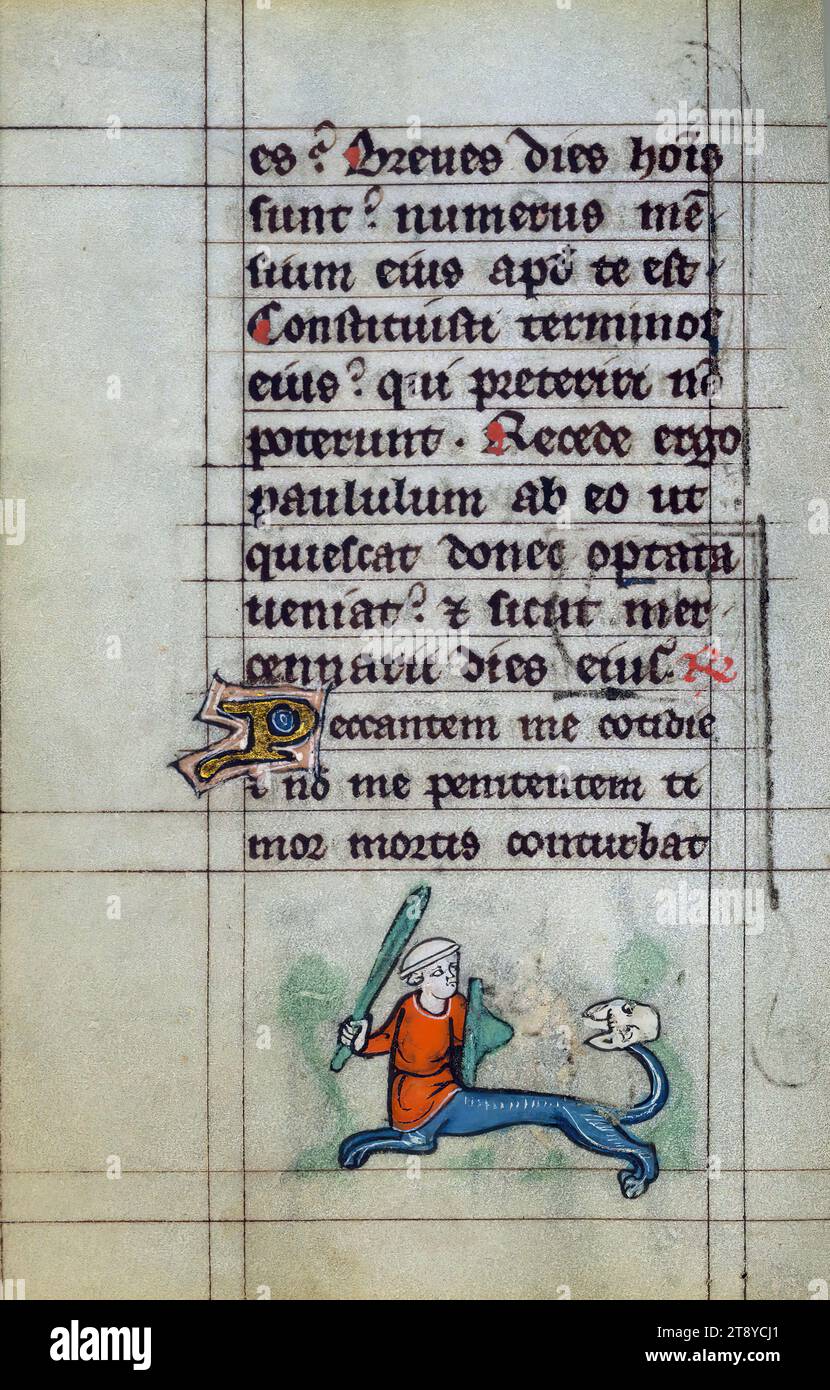 es? Breues dies hoīs
sunt? numerus mē
sium eius apd̄ te est
Constituisti terminos
eius? qui preteriri nō
poterunt. Recede ergo
paululum ab eo ut
quiescat donec optata
ueniat? ⁊ sicut mer
cennarii dies eius. R
Peccantem me cotidie
⁊ nō me penitentem ti
mor mortis conturbat
alamy
Image ID: 2T8YCJ1
www.alamy.com